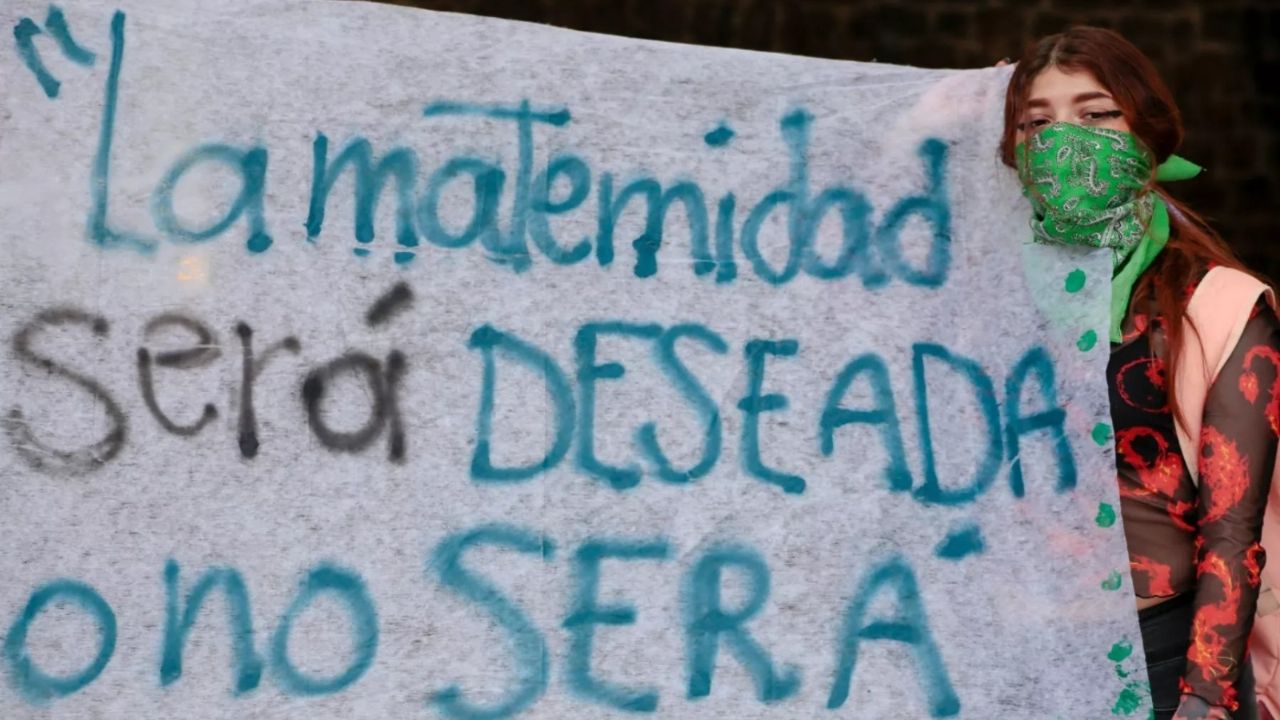 "La maternidad
será DESEADA
o no SERÁ